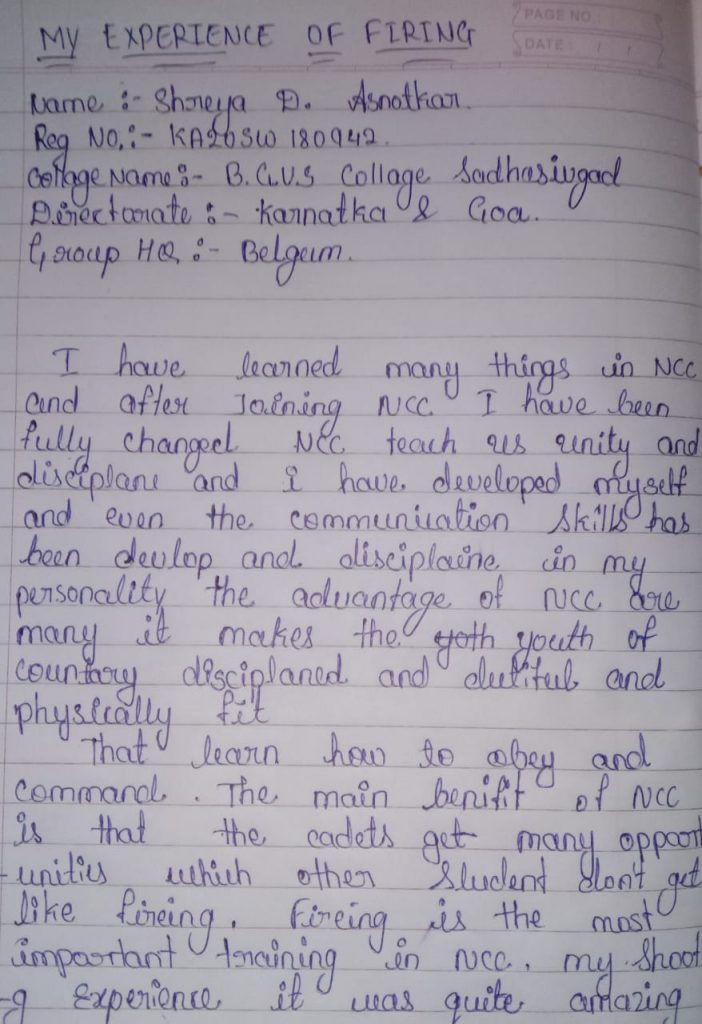 PAGE NO.:
DATE: / /
MY EXPERIENCE OF FIRING
Name :- Shreya D. Asnotkar.
Reg NO.:- KA20SW180942.
Collage Name:- B.G.V.S Collage Sadhasivgad
Directorate :- Karnatka & Goa.
Group HQ :- Belgeum.
I have learned many things in NCC
and after Joining NCC I have been
fully changed NCC teach us unity and
disciplane and i have developed myself
and even the communication skills has
been devlop and disciplaine in my
personality the advantage of NCC are
many it makes the yoth youth of
countary disciplaned and dutiful and
physically fit
That learn how to obey and
command. The main benifit of NCC
is that the cadets get many opport
-unities which other student don't get
like fireing. Fireing is the most
important training in NCC. my shoot
-g Experience it was quite amazing